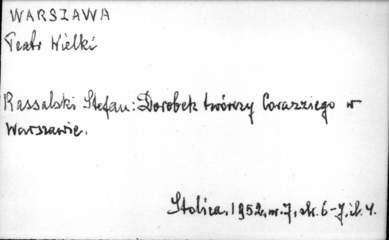 WARSZAWA
Teatr Wielki
Rassalski Stefan: Dorobek twórczy Corazziego w
Warszawie.
Stolica, 1952, nr. 7, str. 6-7, il. 4.